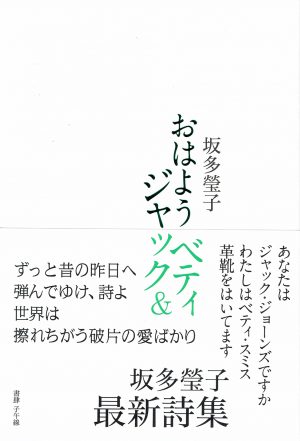 坂多瑩子
おはよう
ジャック&
ベティ
あなたは
ジャック・ジョーンズですか
わたしはベティ・スミス
革靴をはいてます
ずっと昔の昨日へ
弾んでゆけ、詩よ
世界は
擦れちがう破片の愛ばかり
坂多瑩子
最新詩集
書肆 子午線